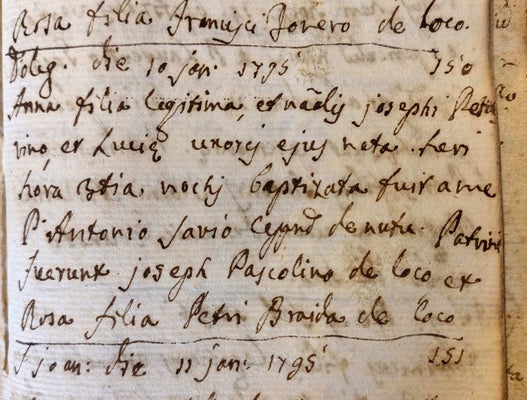 Rosa filia Francisci Bonero de loco.
Poleg. die 10 jan. 1795 150
Anna filia legitima, et nãalis josephi Petro
vino, et Lucię uxoris ejus nata heri
hora 3tia noctis baptizata fuit a me
P. Antonio Savio de nutu. Patrini
fuerunt joseph Pascolino de loco et
Rosa filia Petri Braida de loco
S joan: die 11 jan: 1795 151